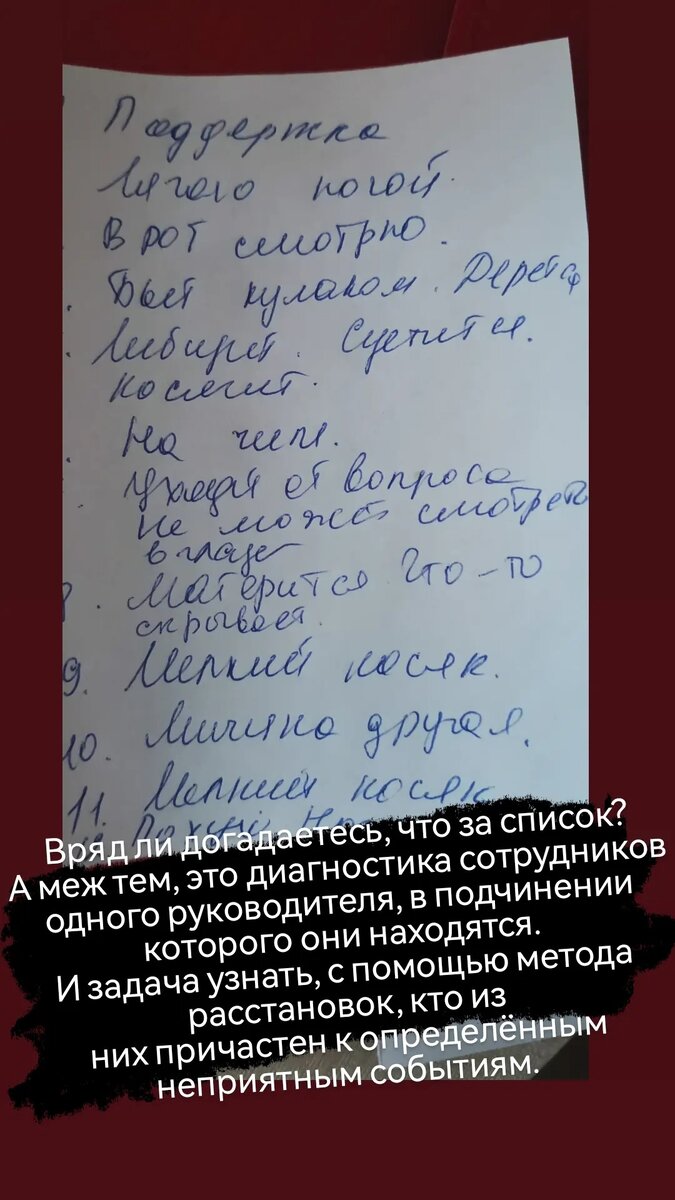 Поддержка
Лягаю ногой.
В рот смотрю.
. Бьет кулаком. Дерется
. Либерит. Суетится.
косячит.
. На чиле.
Уходит от вопроса
не может смотреть
в глаза
8. Матерится Что-то
скрывает.
9. Мелкий косяк.
10. Личина другая.
11. Мелкий косяк
Вряд ли догадаетесь, что за список?
А меж тем, это диагностика сотрудников
одного руководителя, в подчинении
которого они находятся.
И задача узнать, с помощью метода
расстановок, кто из
них причастен к определённым
неприятным событиям.